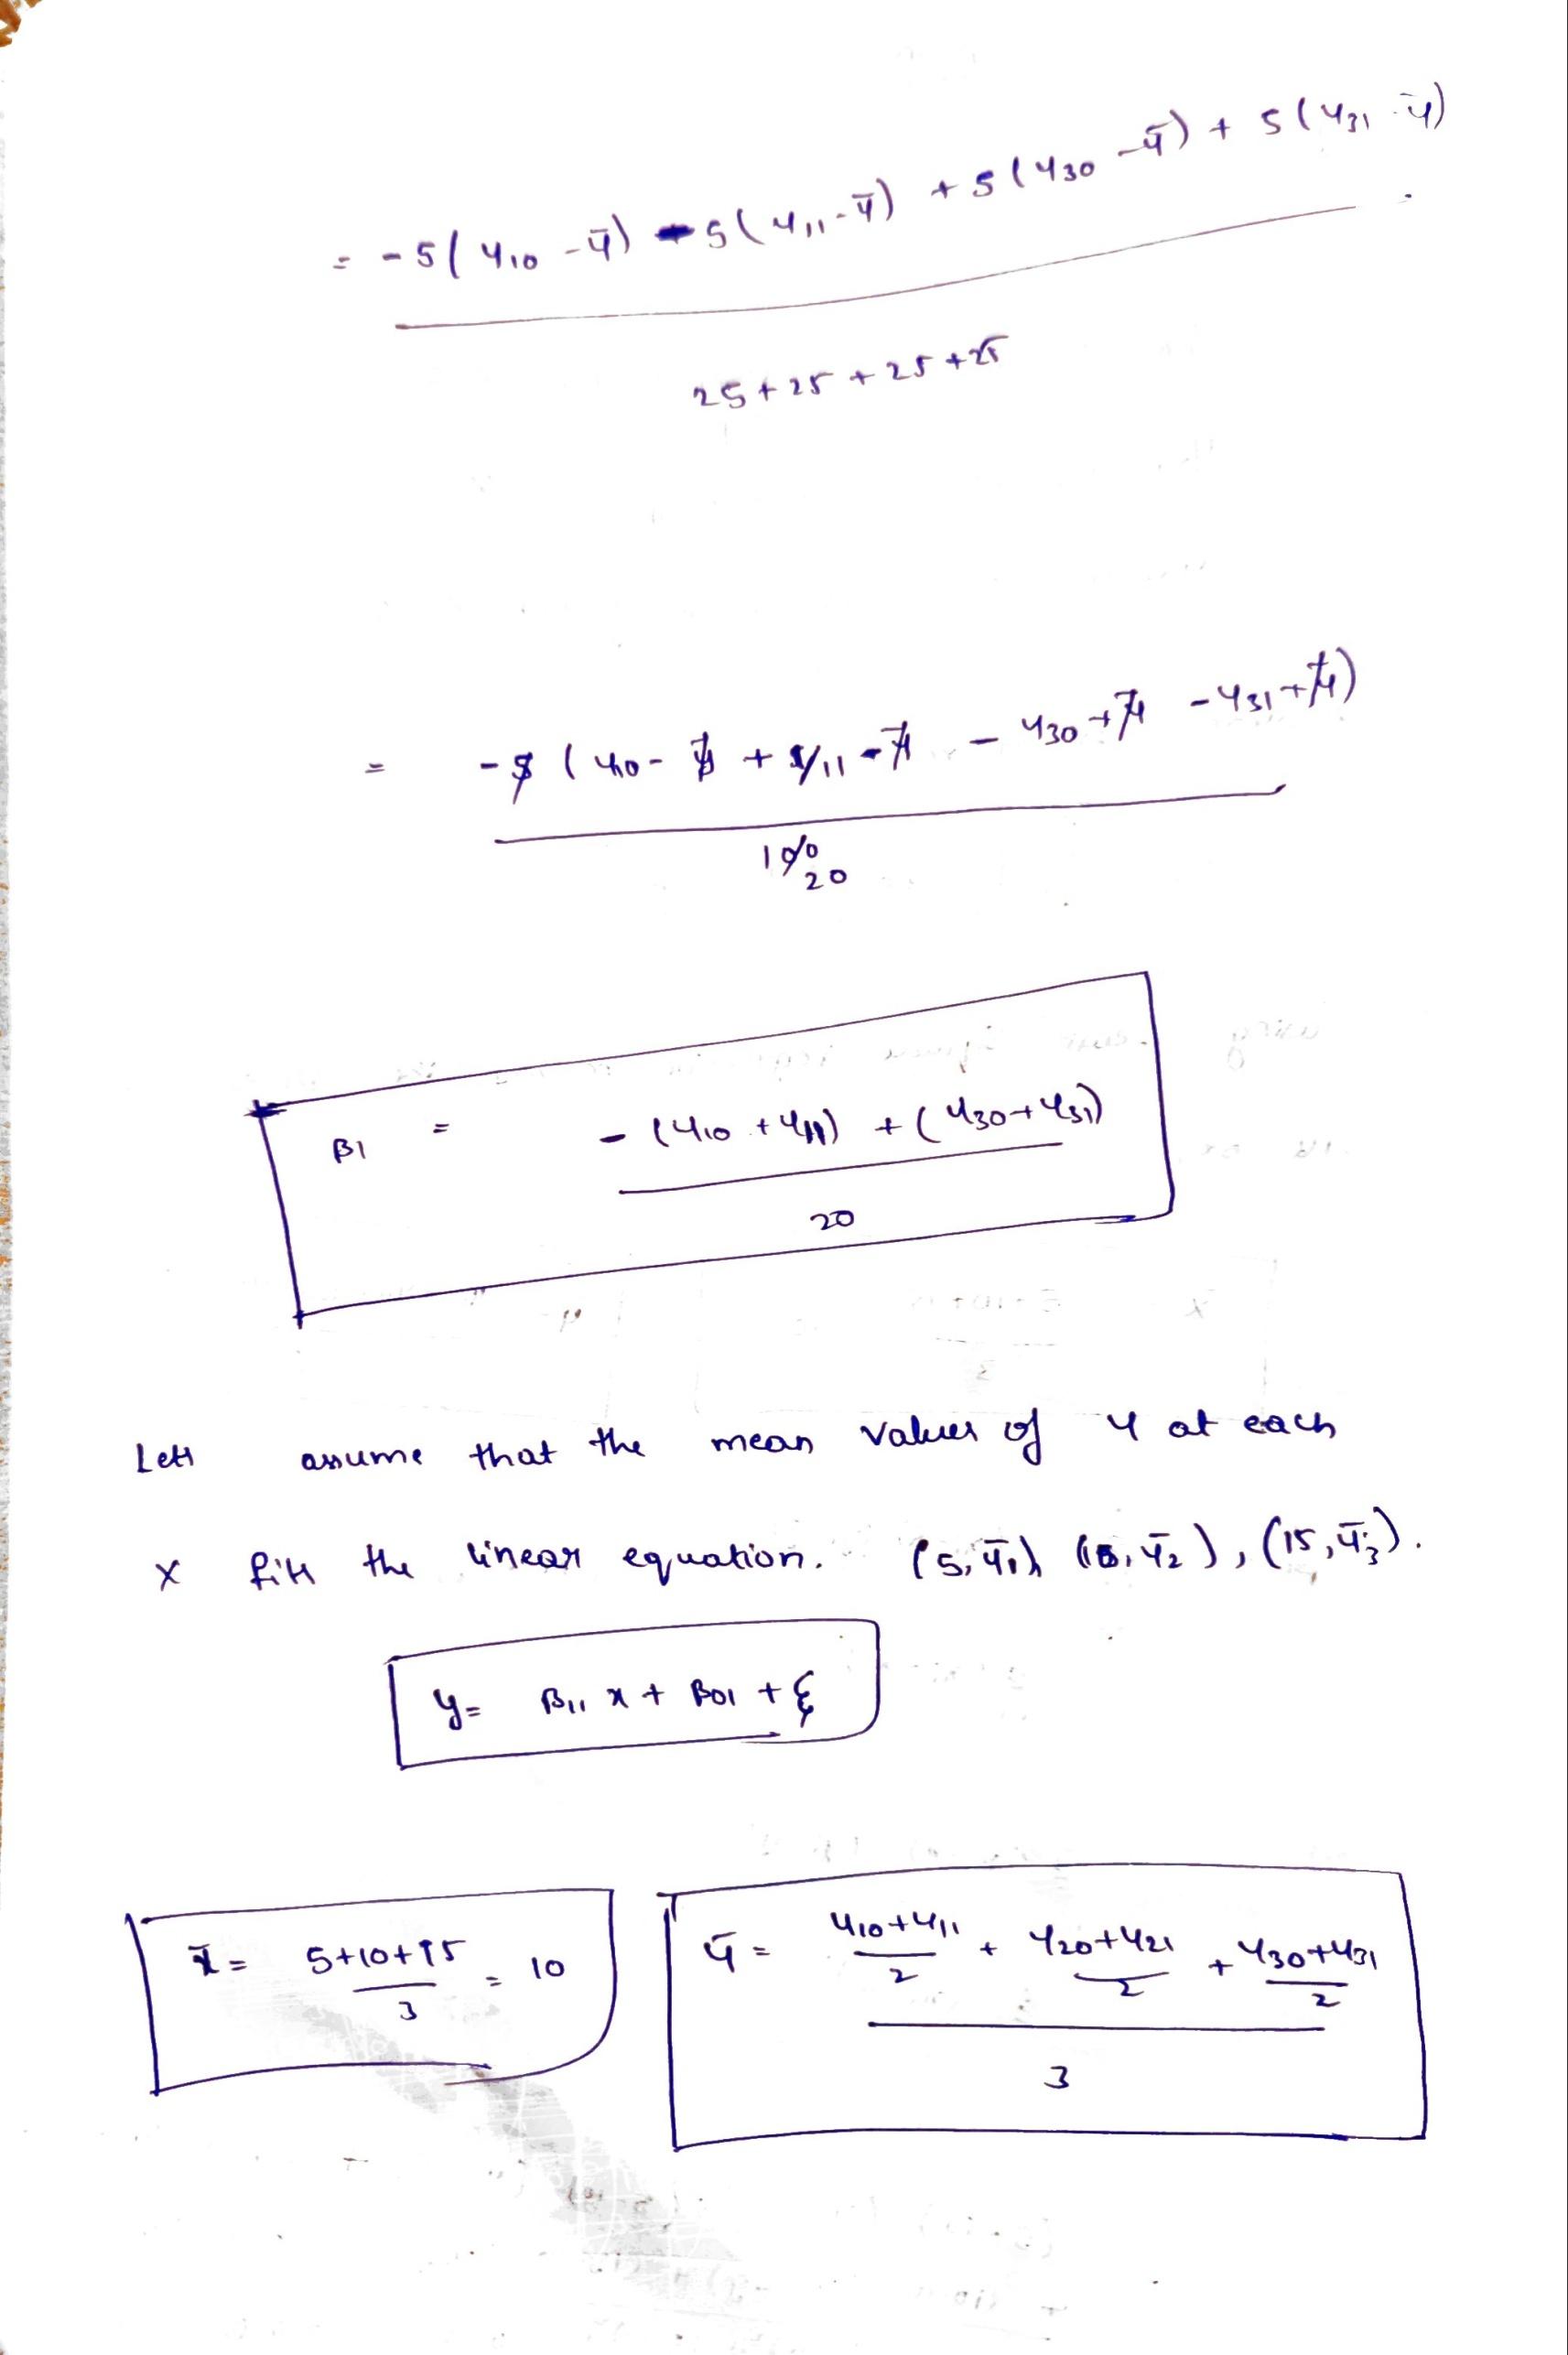 = -5(y10 - ȳ) - 5(y11 - ȳ) + 5(y30 - ȳ) + 5(y31 - ȳ)
25 + 25 + 25 + 25
= -5(y10 - ȳ + y11 - ȳ - y30 + ȳ - y31 + ȳ)
100
20
β1 = -(y10 + y11) + (y30 + y31)
20
Lets assume that the mean values of y at each
x fits the linear equation. (5, ȳ1) (10, ȳ2), (15, ȳ3).
y = β11 x + β01 + ξ
x̄ = 5+10+15 = 10
3
ȳ = y10+y11 + y20+y21 + y30+y31
2 2 2
3